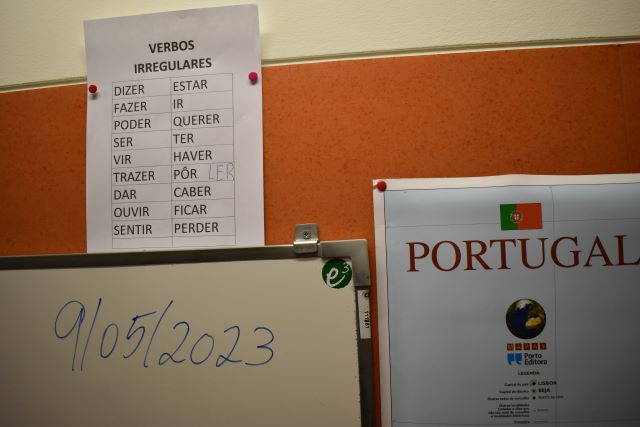 VERBOS
IRREGULARES
DIZER ESTAR
FAZER IR
PODER QUERER
SER TER
VIR HAVER
TRAZER PÔR LER
DAR CABER
OUVIR FICAR
SENTIR PERDER
e3
9/05/2023
PORTUGAL
MAPAS
Porto
Editora
LEGENDA:
Capital do país LISBOA
Capital de distrito BEJA